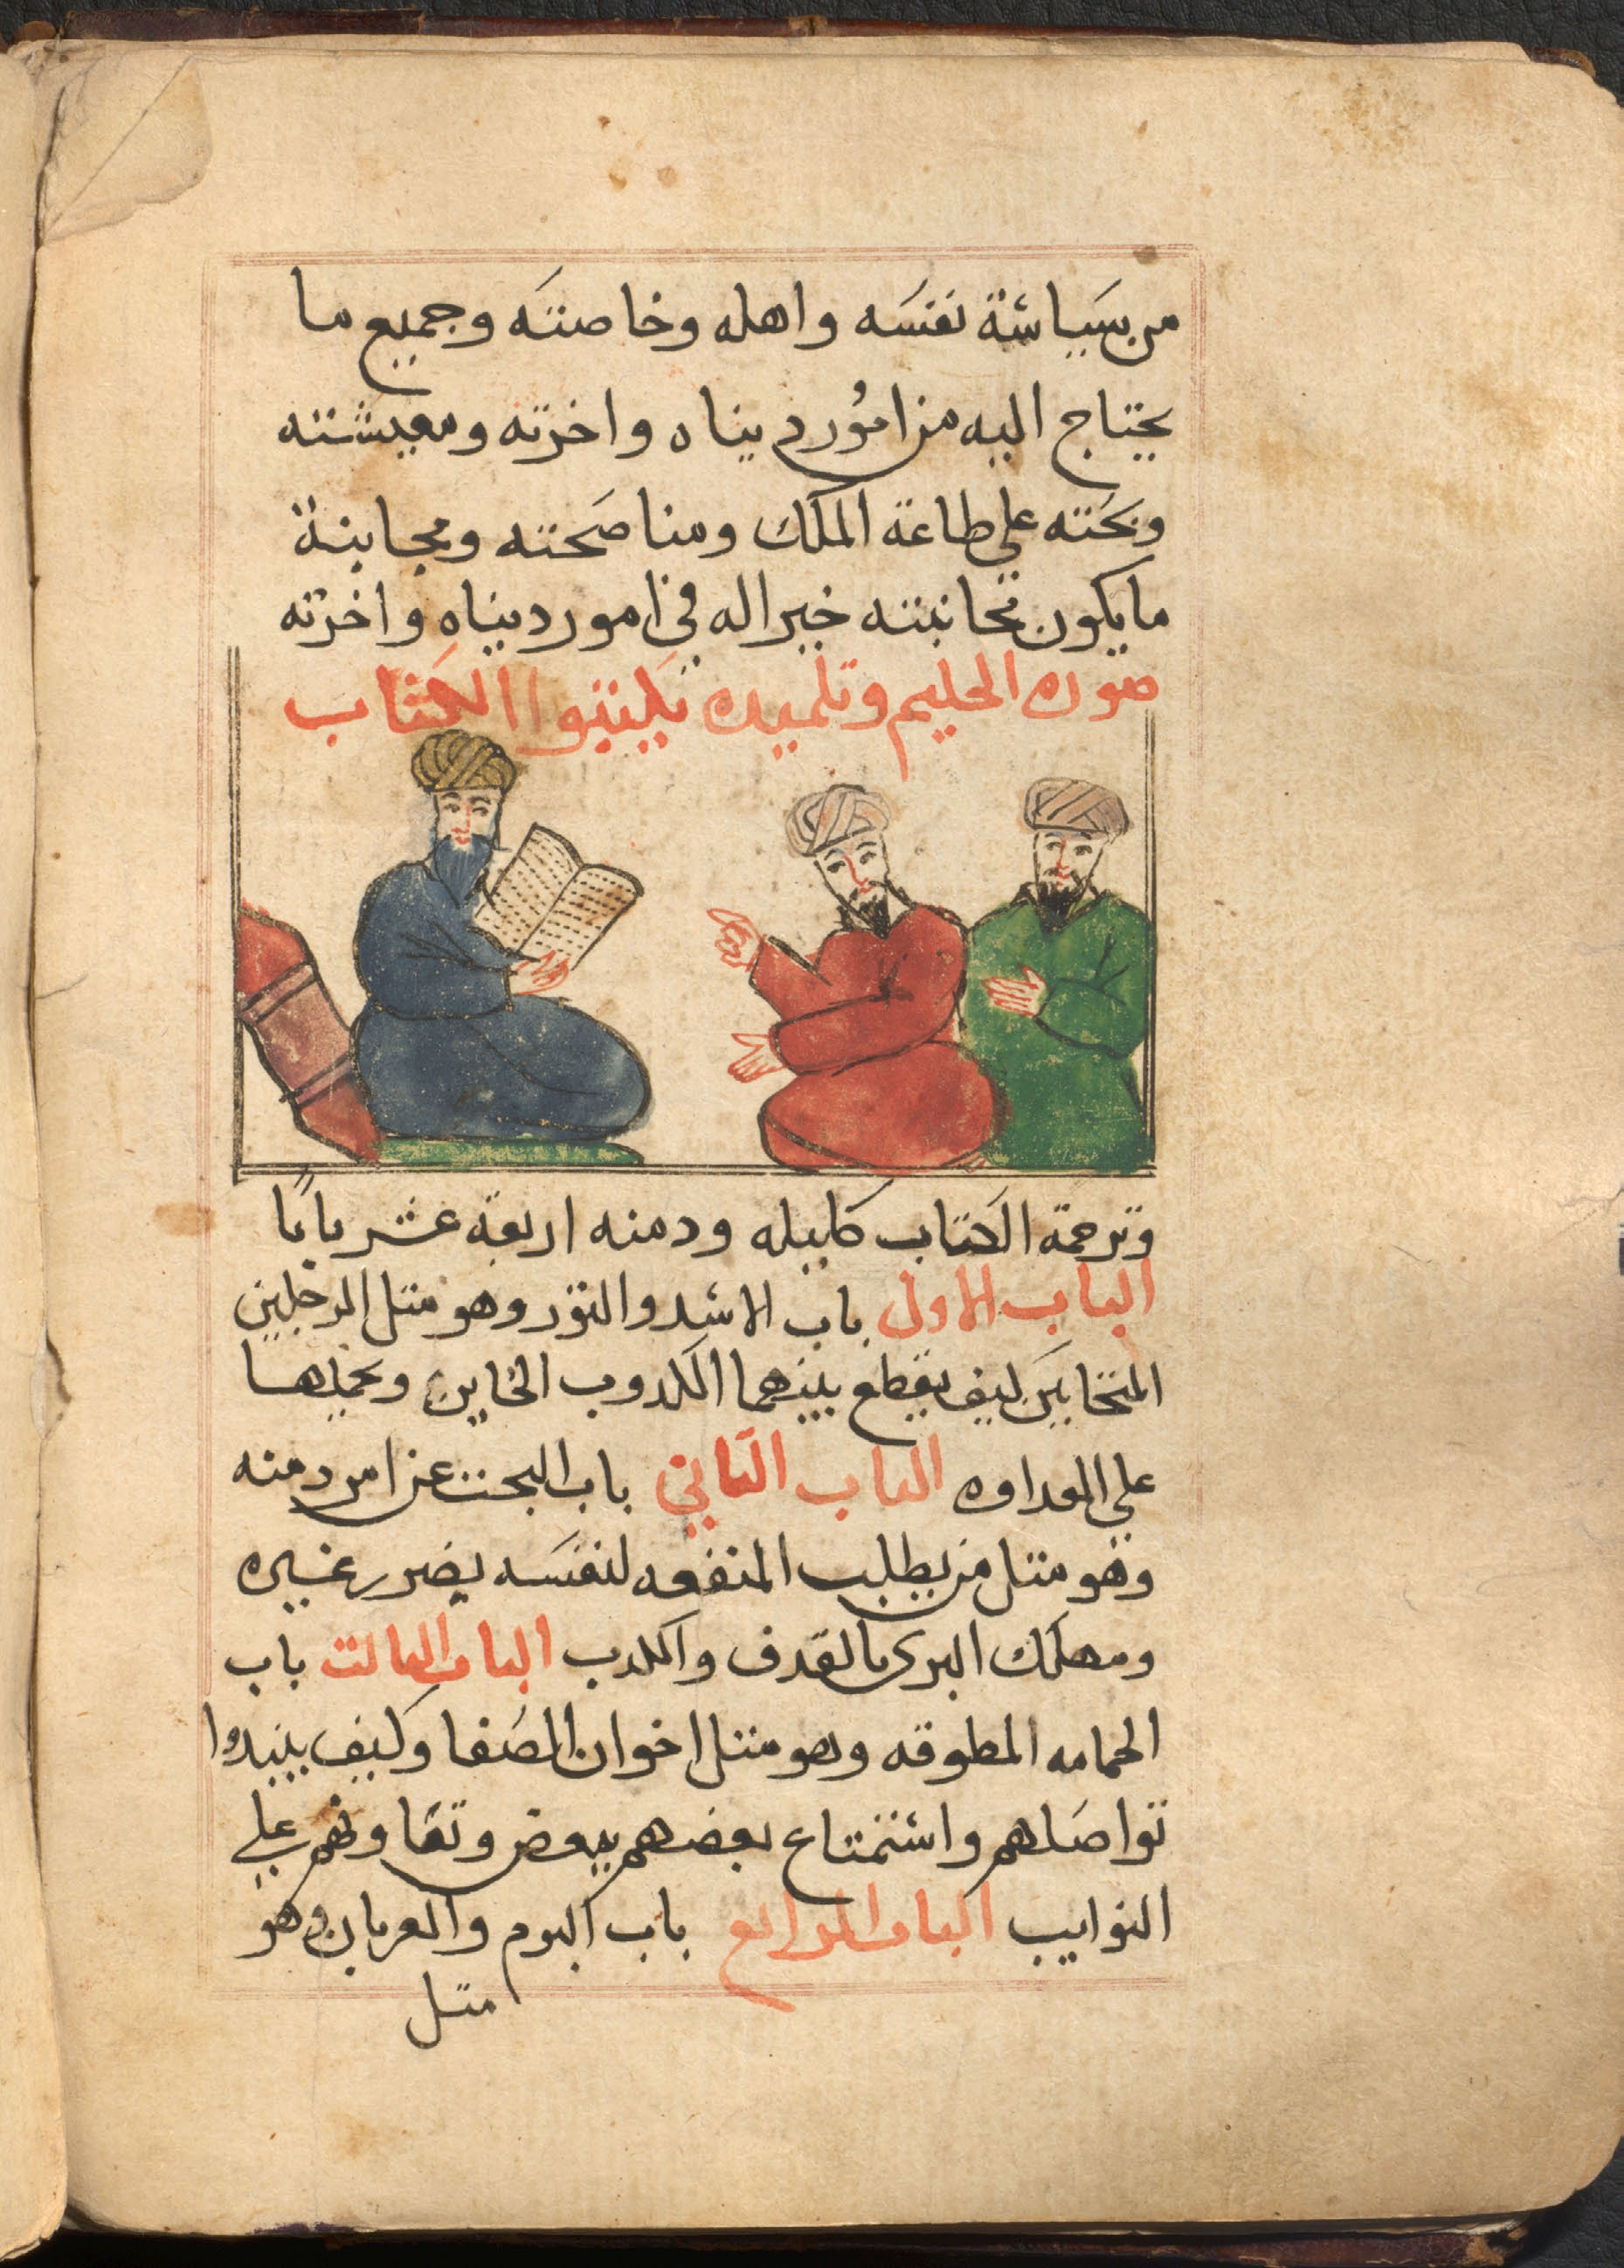 من سياسة نفسه واهله وخاصته وجميع ما
يحتاج اليه من امور دنياه واخرته ومعيشته
ويحته على طاعة الملك ومناصحته ومجانبة
ما يكون مجانبته خيرا له في امور دنياه واخرته
صوره الحكيم وتلميده يكتبوا الكتاب
وترجمة الكتاب كليله ودمنه اربعة عشر بابًا
الباب الاول باب الاسد والثور وهو متل الرجلين
المتحابين كيف يقطع بينهما الكدوب الخاين ويحملهما
على العداوه الباب التاني باب البحث عن امر دمنه
وهو متل من يطلب المنفعه لنفسه بضرر غيره
ومهلك البرى بالقدف والكدب الباب التالت باب
الحمامه المطوقه وهو متل اخوان الصفا وكيف يبتدوا
تواصلهم واستمتاع بعضهم ببعض وتعاونهم على
النوايب الباب الرابع باب البوم والغربان وهو
متل